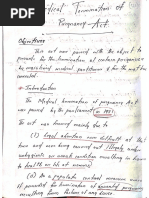 Medical Termination of
Pregnancy Act
Objectives
This act was passed with the object to
provide for the termination of certain pregnancies
by registered medical practitioner & for the matter
Introduction
The Medical Termination of Pregnancy Act
was passed by the parliament in 1971
The act was passed mainly due to
(1) Legal abortion was difficult at that
time and were being carried out illegally under
unhygienic conditions resulting in hazard
to health or life of women
(2) As a population control measure
it provided for termination of unwanted pregnancy
resulting from failure of any device